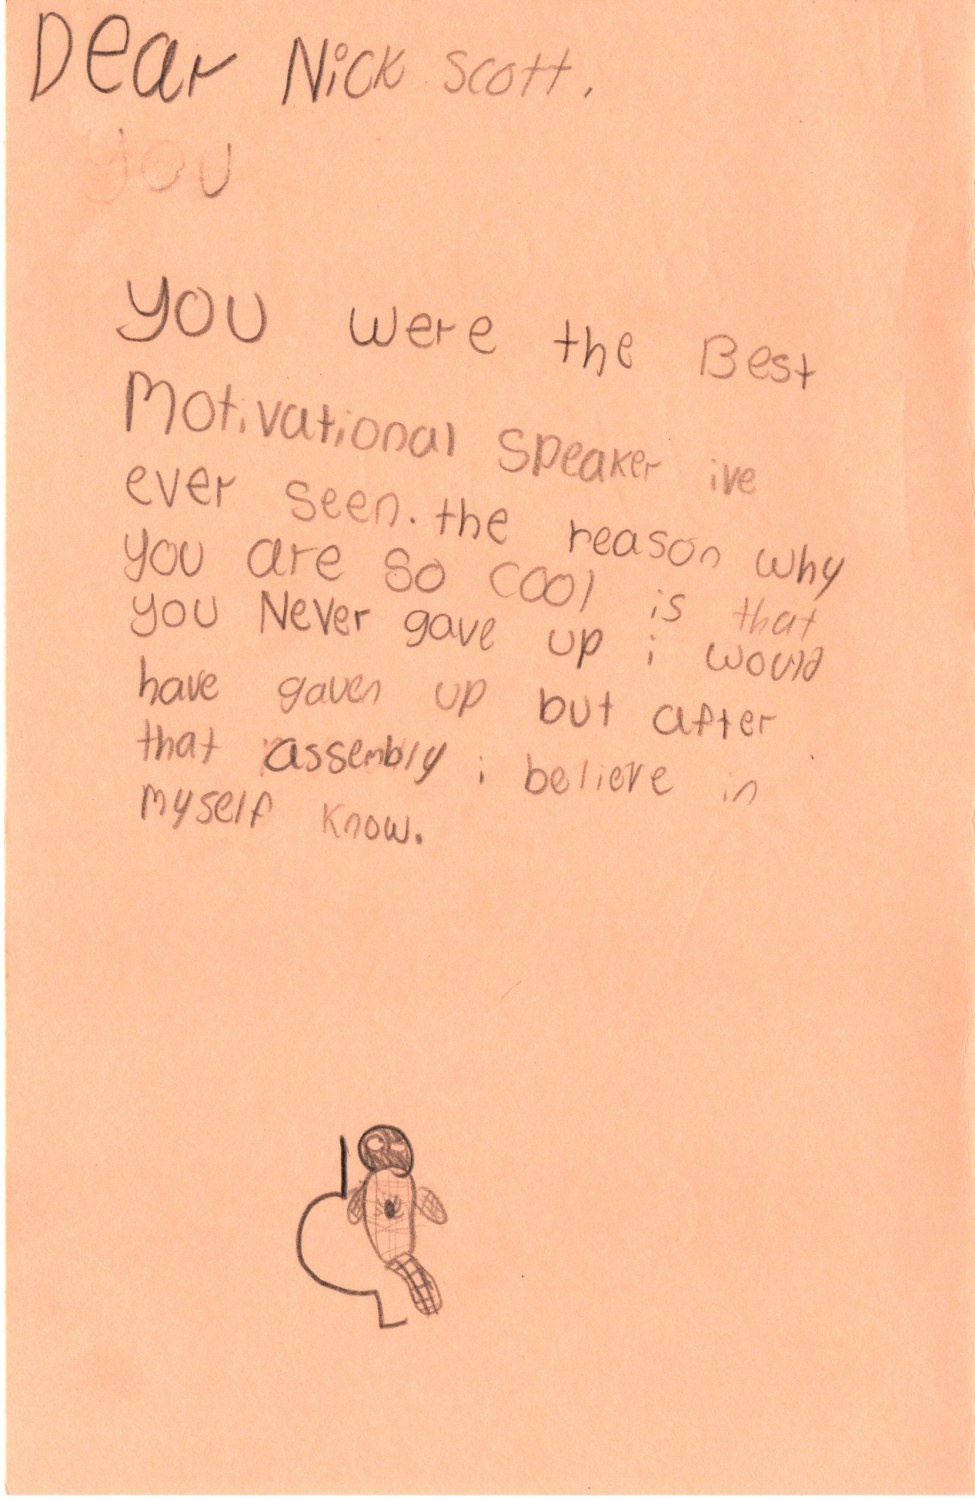 Dear Nick Scott,
you
you were the Best
Motivational speaker ive
ever seen. the reason why
you are so cool is that
you Never gave up i would
have gaven up but after
that assembly i believe in
myself know.